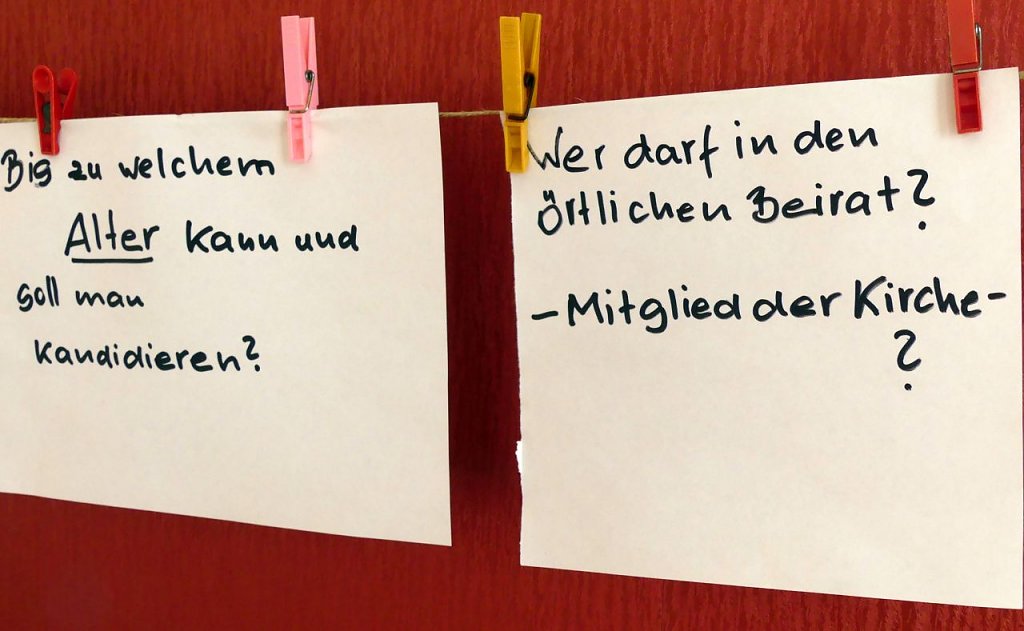 Bis zu welchem
Alter kann und
soll man
kandidieren?
Wer darf in den
örtlichen Beirat?
- Mitglied der Kirche -
?